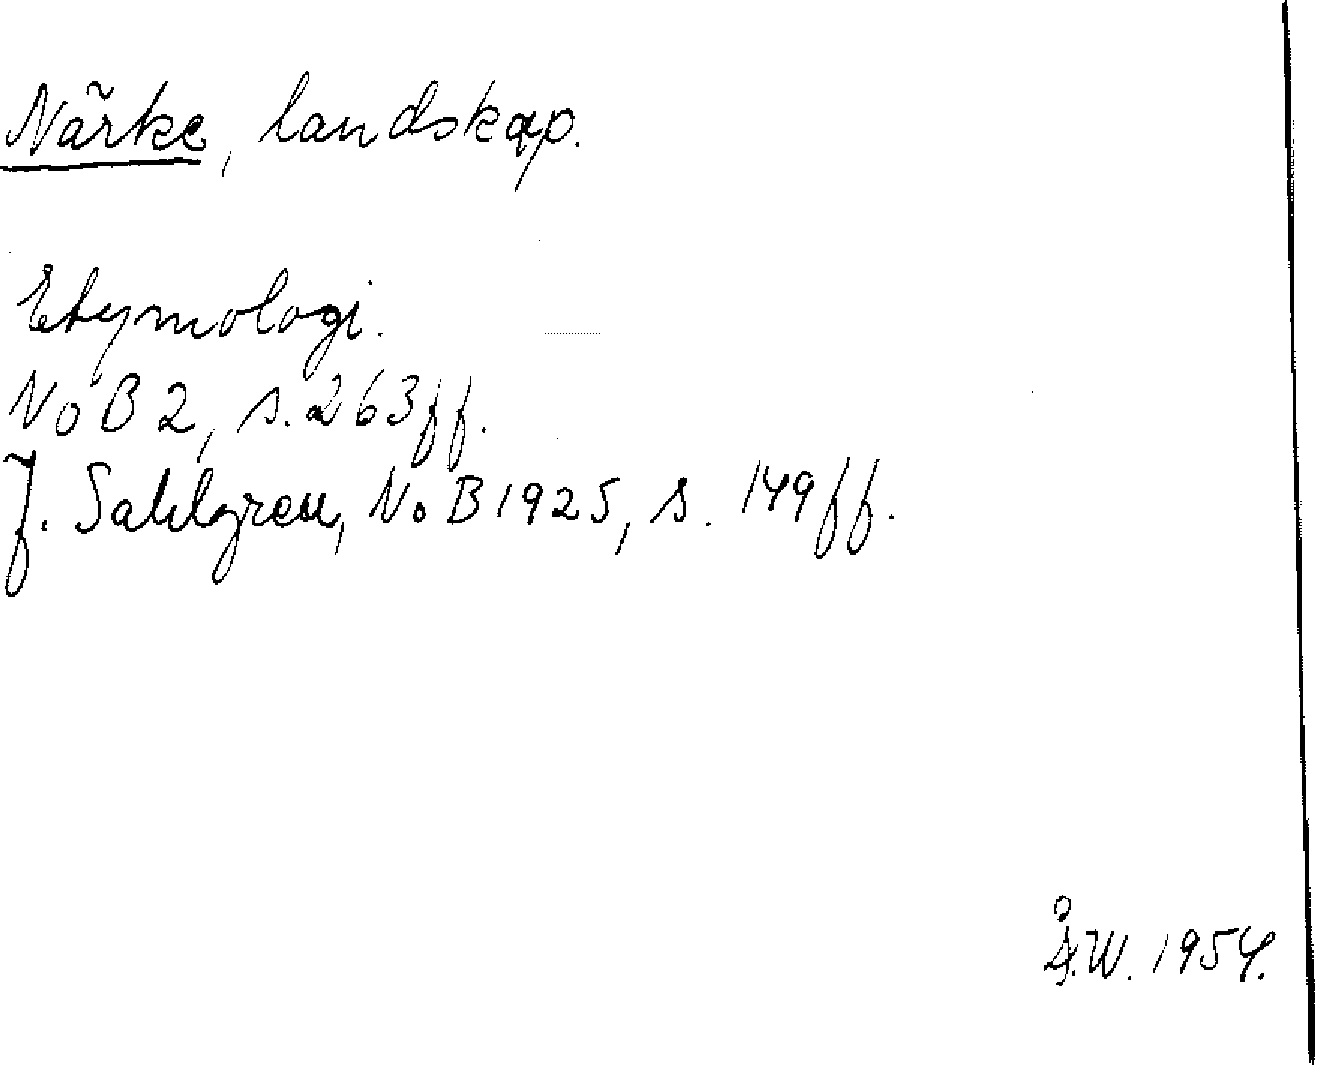 Närke, landskap.
Etymologi.
NoB 2, s. 263 ff.
J. Sahlgren, NoB 1925, s. 149 ff.
Å.W. 1954.